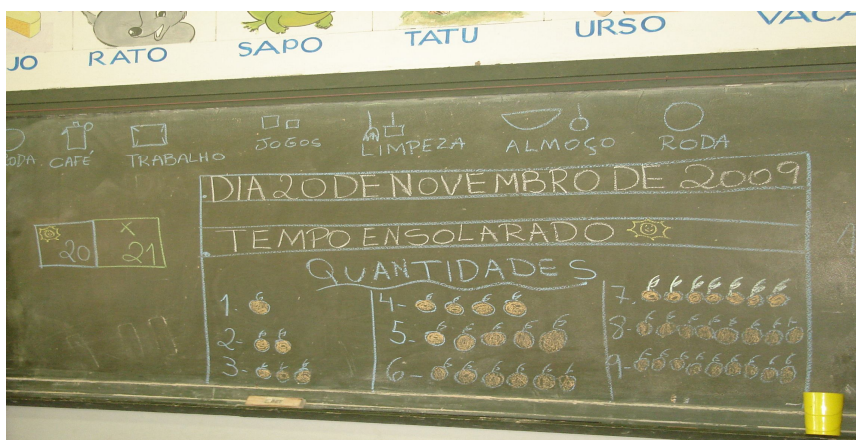 JO RATO SAPO TATU URSO VACA
RODA CAFÉ TRABALHO JOGOS LIMPEZA ALMOÇO RODA
DIA 20 DE NOVEMBRO DE 2009
20 X 21
TEMPO ENSOLARADO
QUANTIDADES
1. 4- 7.
2- 5- 8-
3- 6- 9-